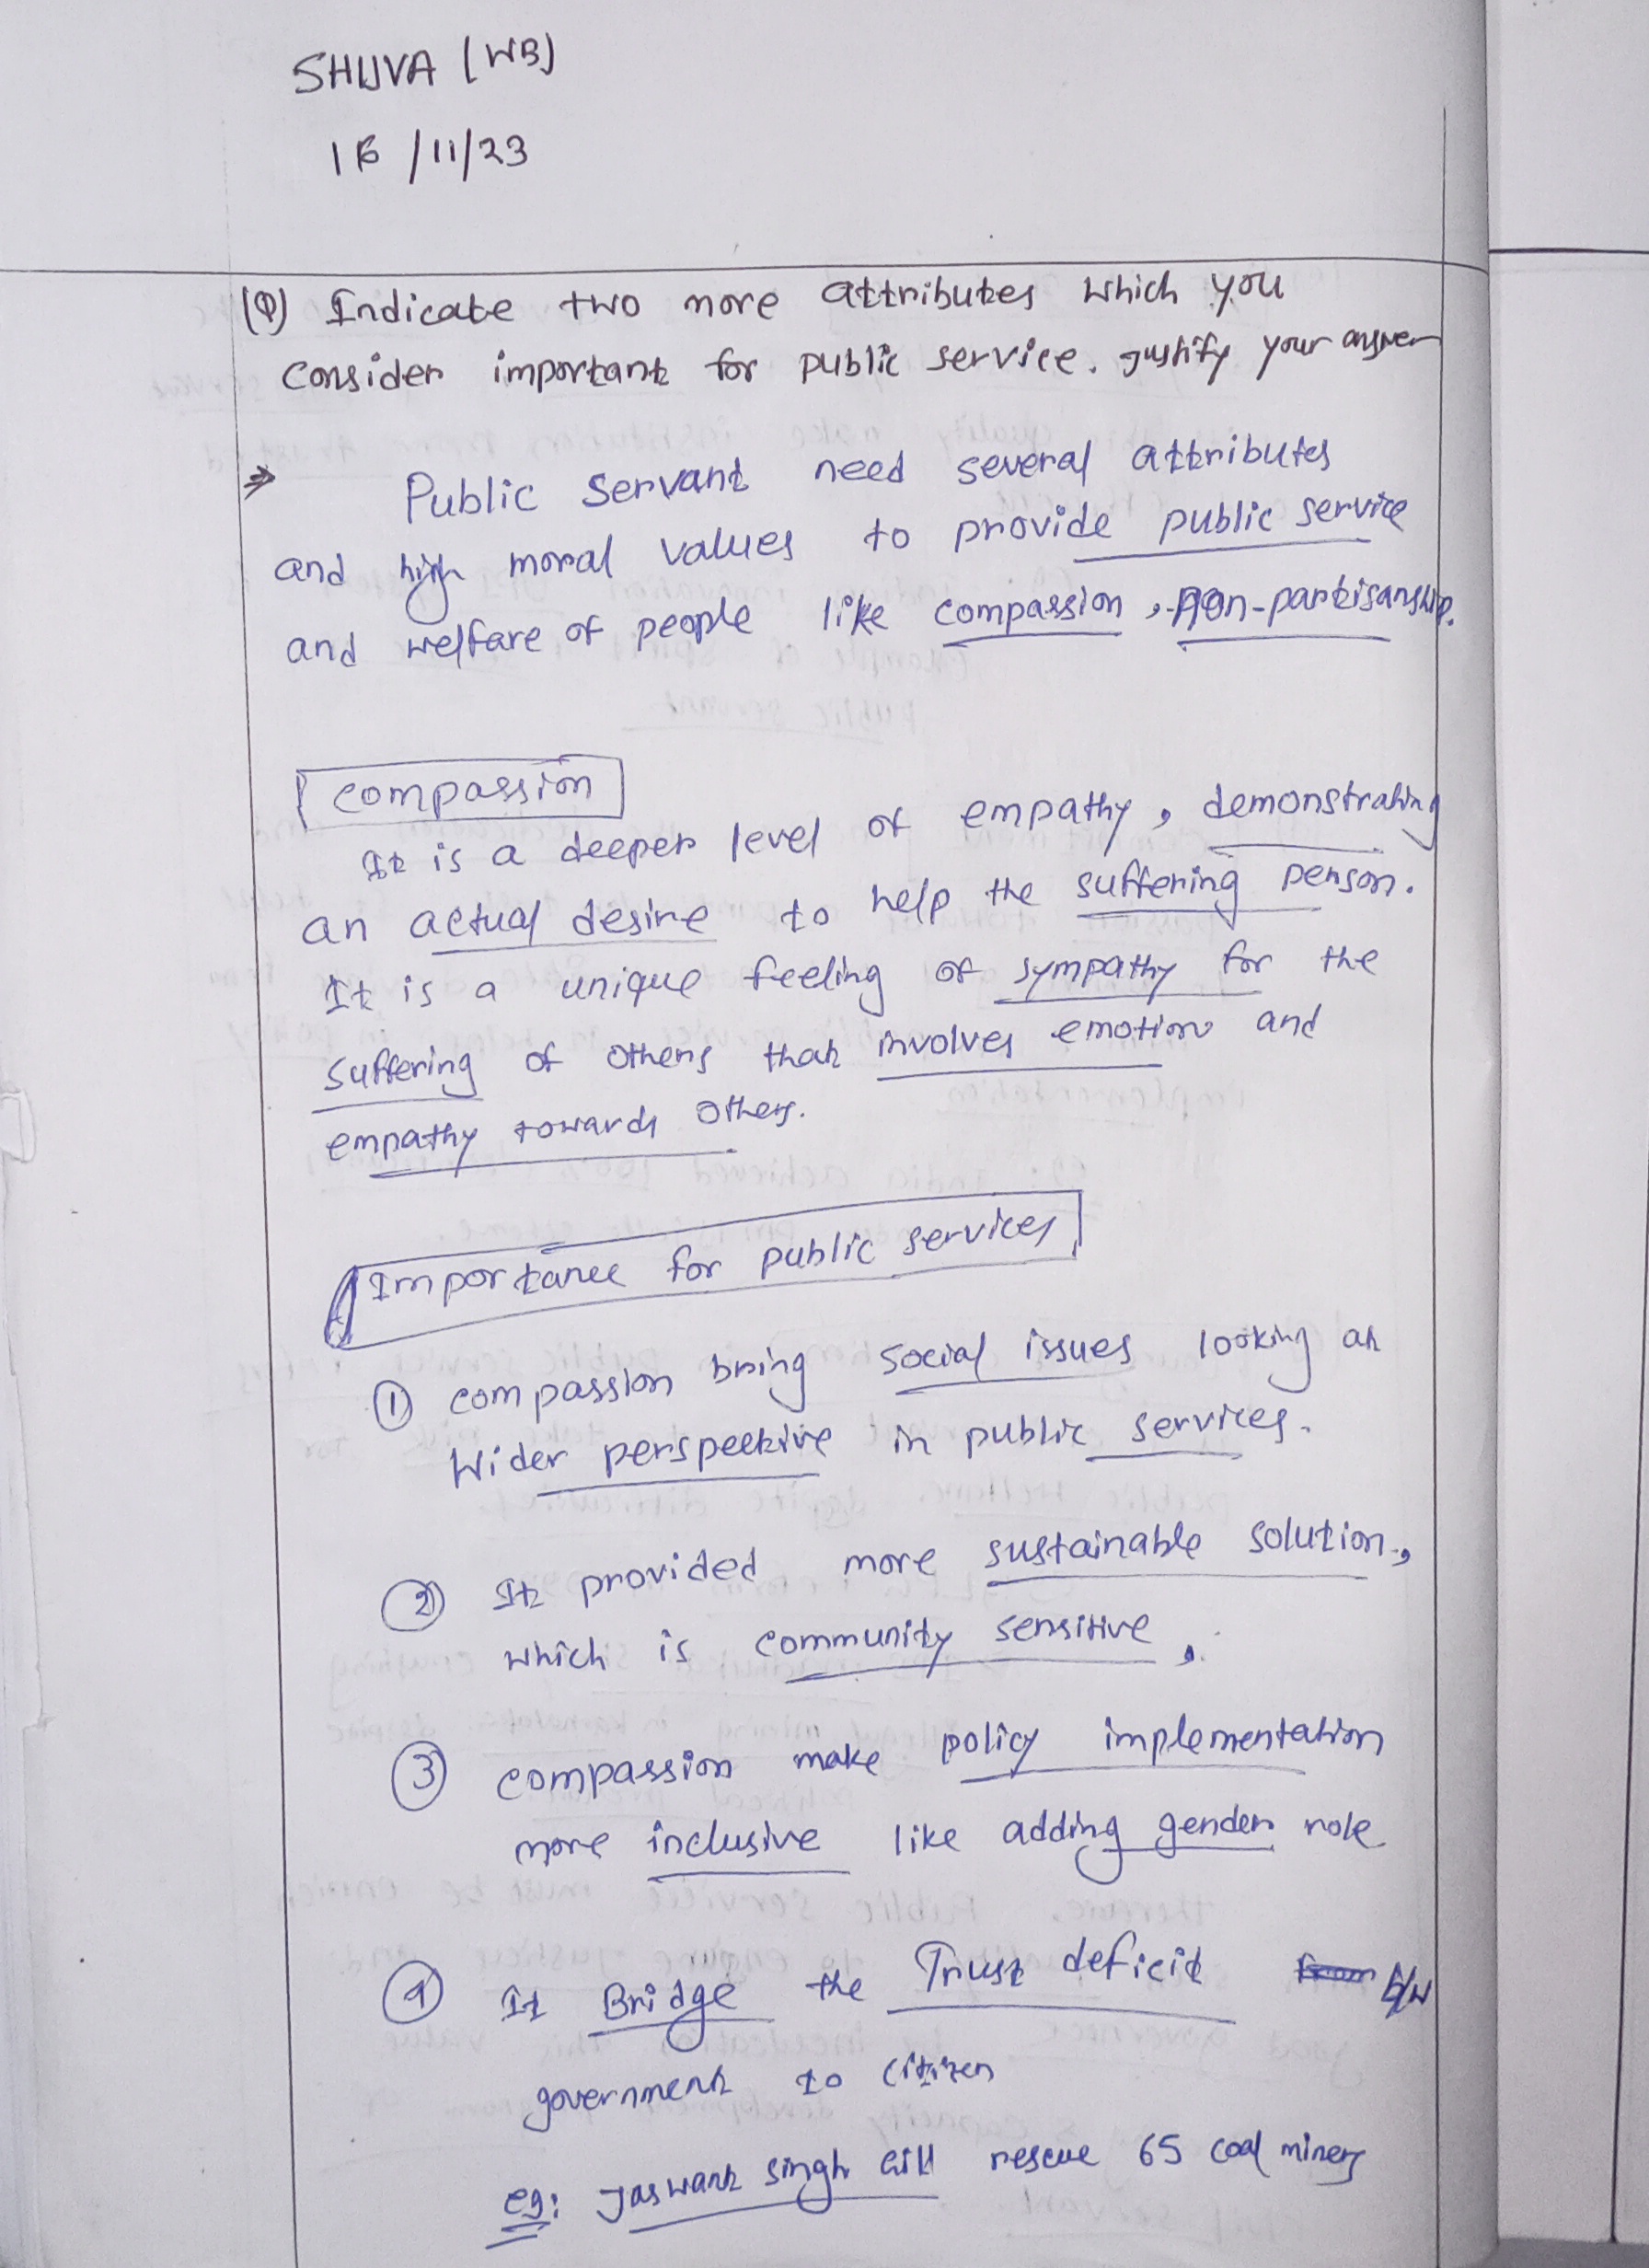 SHUVA (WB)
16/11/23
(Q) Indicate two more attributes which you
consider important for public service. Justify your answer
⇒ Public Servant need several attributes
and high moral values to provide public service
and welfare of people like compassion, non-partisanship.
compassion
It is a deeper level of empathy, demonstrating
an actual desire to help the suffering person.
It is a unique feeling of sympathy for the
suffering of others that involves emotion and
empathy towards others.
Importance for public services
① compassion bring social issues looking at
wider perspective in public services.
② It provided more sustainable solution,
which is community sensitive,
③ compassion make policy implementation
more inclusive like adding gender role
④ It Bridge the Trust deficit from b/w
government to citizen
eg: Jaswant Singh Gill rescue 65 coal miners